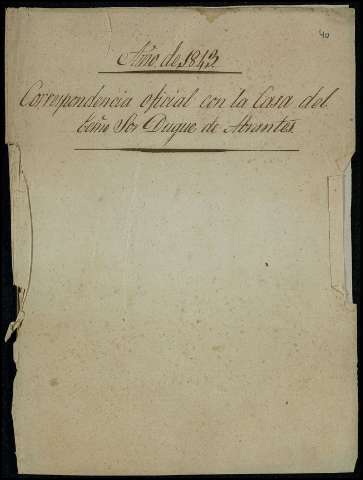 40
Año de 1843
Correspondencia oficial con la Casa del
Señor Duque de Abrantes